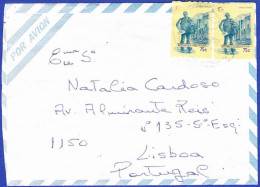 POR AVION
75c 75c
Exmª S.
Natalia Cardoso
Av. Almirante Reis
nº 135-5º Esq.
1150
Lisboa
Portugal